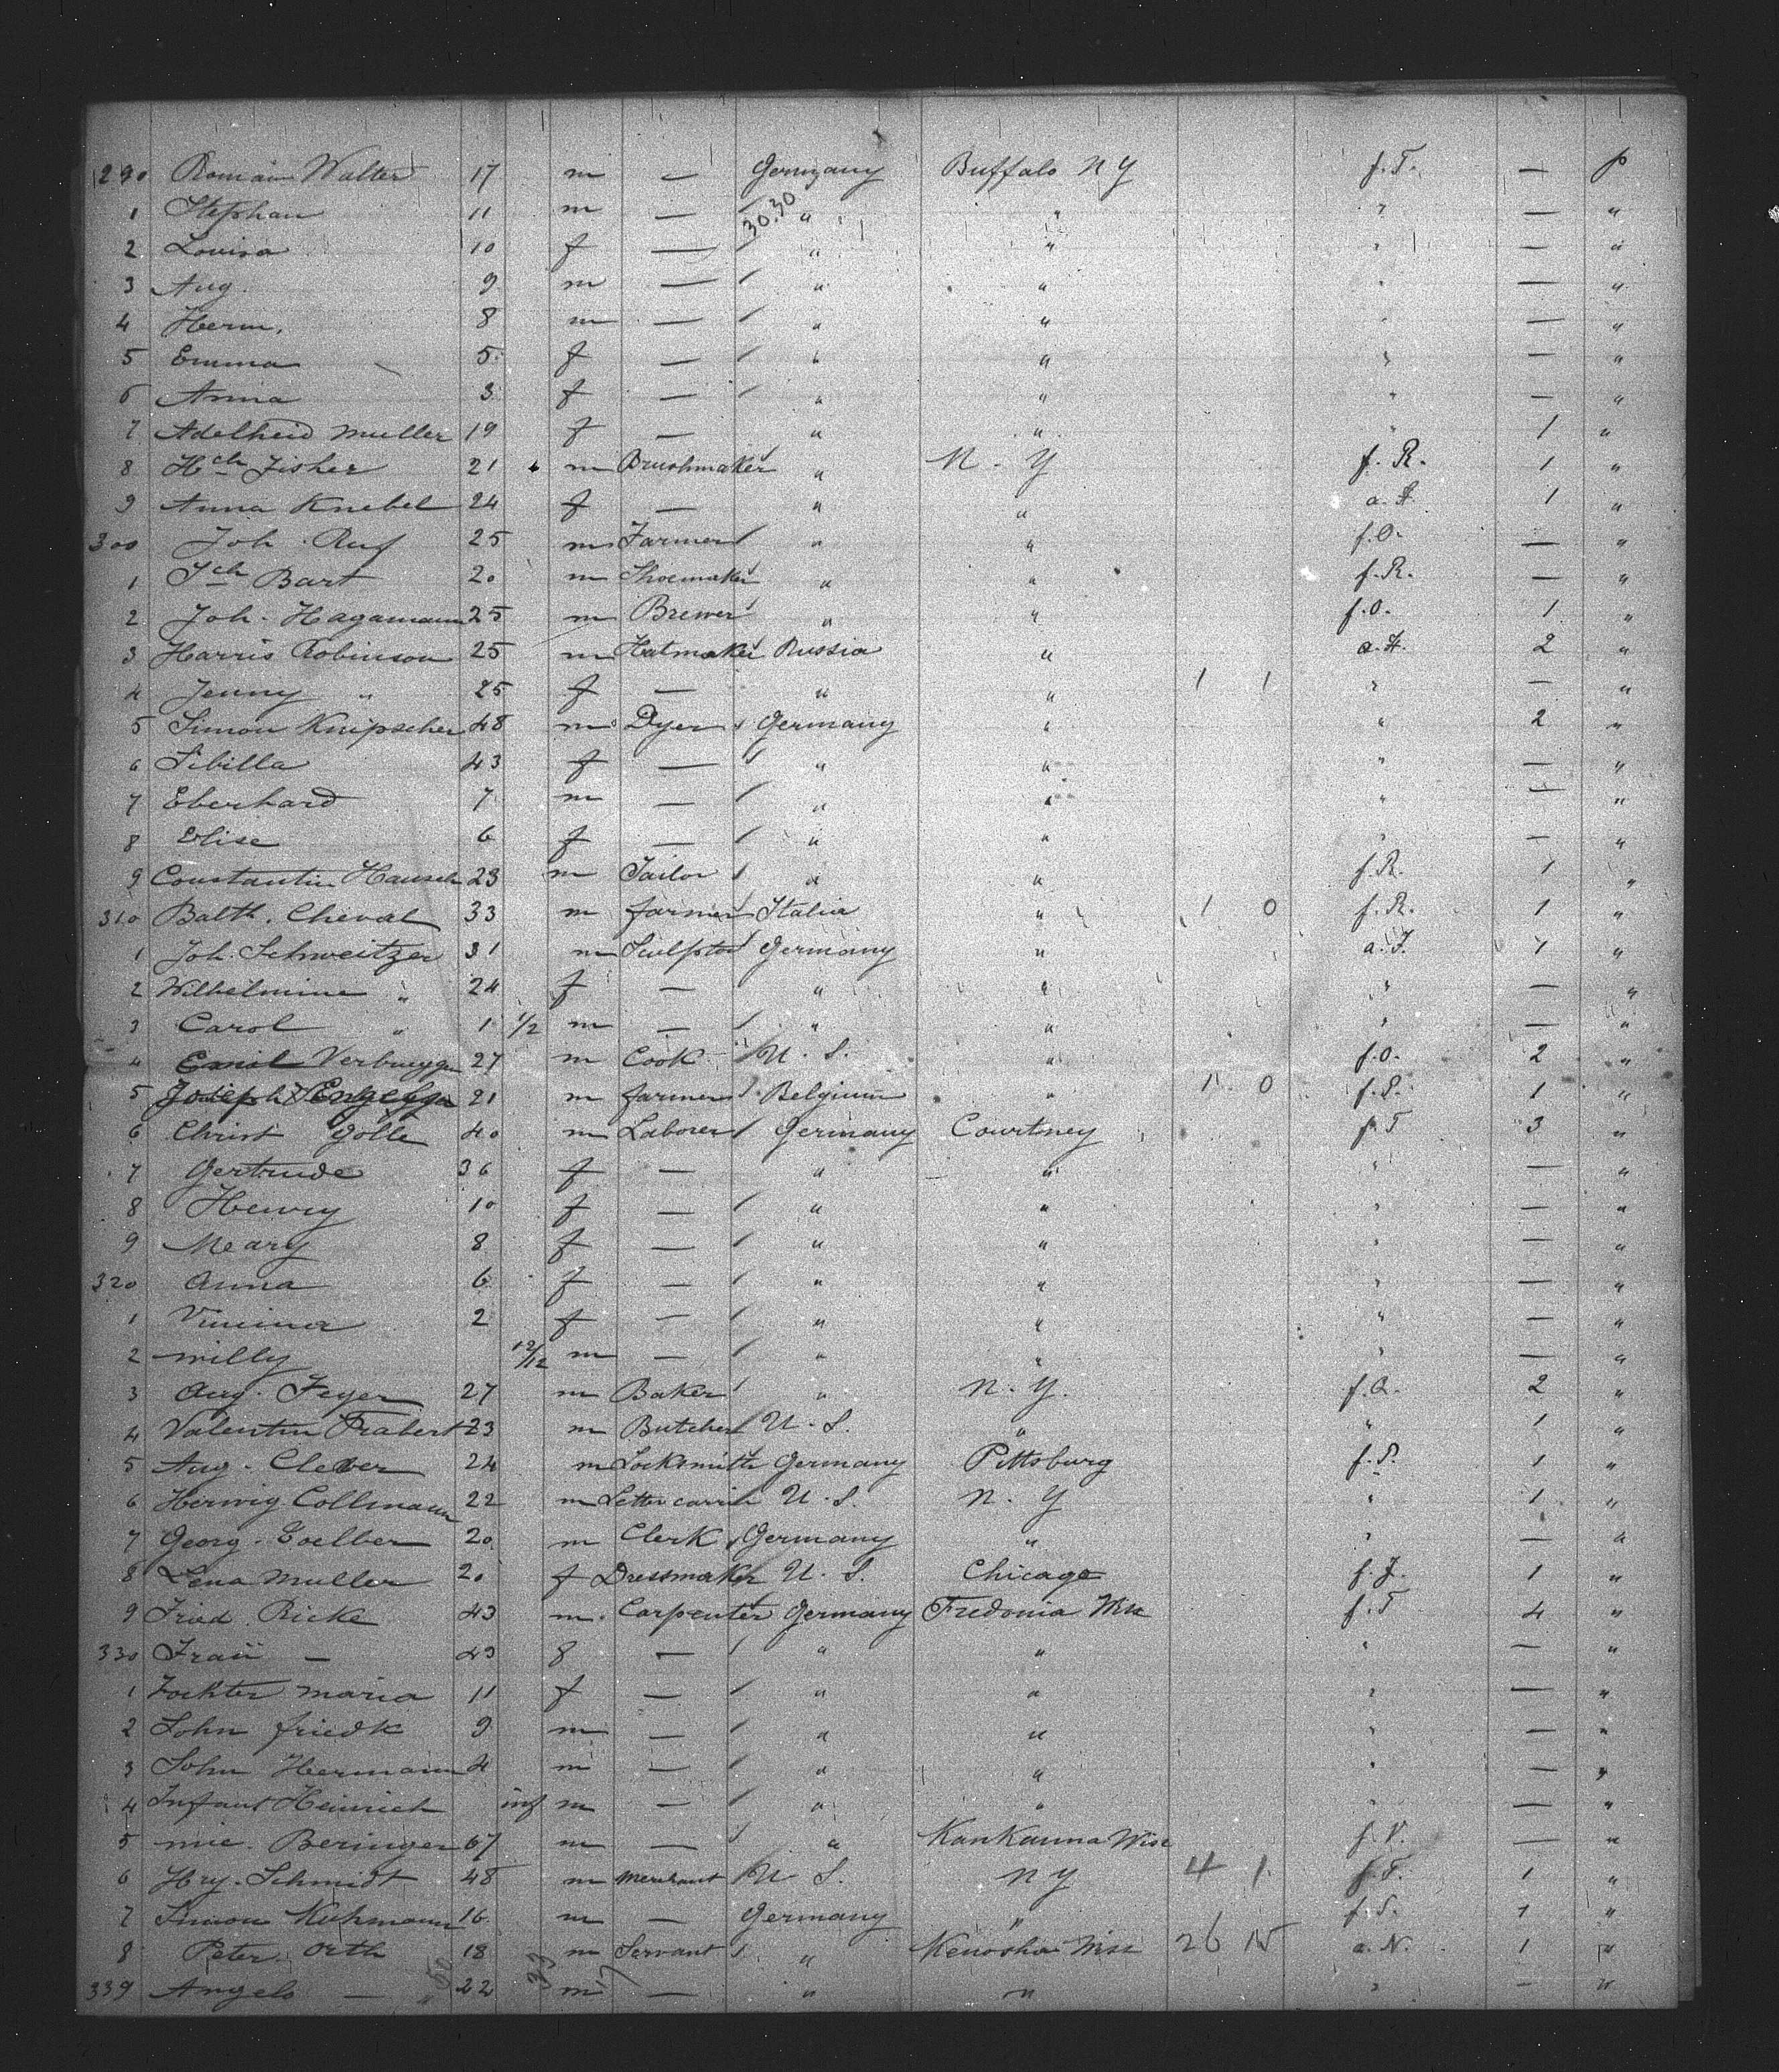 290 Romain Walter 17 m — Germany Buffalo N Y f. T. — p
30.30
1 Stephan 11 m — " " " — "
2 Lovisa 10 f — " " " — "
3 Aug. 9 m — " " " — "
4 Herm. 8 m — " " " — "
5 Emma 5 f — " " " — "
6 Anna 3 f — " " " — "
7 Adelheid Muller 19 f — " " " 1 "
8 Hch Fisher 21 m Brushmaker " N. Y f. R. 1 "
9 Anna Knebel 24 f — " " 1 "
300 Joh. Ruf 25 m Farmer " " f. O. — "
1 Bart 20 m Shoemaker " " f. R. — "
2 Joh. Hagamann 25 m Brewer " " f. O. 1 "
3 Harris Robinson 25 m Hatmaker Russia " 2 "
4 Jenny " 25 f — " " 1 1 " — "
5 Simon Knipscher 48 m Dyer Germany " " 2 "
6 Sibilla 43 f — " " " — "
7 Eberhard 7 m — " " " — "
8 Elise 6 f — " " " — "
9 Constantin Hausch 23 m Tailor " " f. R. 1 "
310 Balth. Cheval 33 m farmer Italia " 1 0 f. R. 1 "
1 Joh. Schweitzer 31 m Sculptor Germany " a. F. 1 "
2 Wilhelmine " 24 f — " " " — "
3 Carol " 1 1/2 m — " " " — "
4 Emil Verbruggen 27 m Cook U. S. " f. O. 2 "
5 Joseph 21 m farmer Belgium " 1 0 1 "
6 Christ Golle 40 m Laborer Germany Courtney f T 3 "
7 Gertrude 36 f — " " " — "
8 Henry 10 f — " " " — "
9 Meary 8 f — " " " — "
320 Anna 6 f — " " " — "
1 Vimina 2 f — " " " — "
2 Willy 12/12 m — " " " — "
3 Aug. Feyer 27 m Baker " N. Y. 2 "
4 Valentin Trabert 23 m Butcher U. S. " " 1 "
5 Aug. Clever 24 m Locksmith Germany Pittsburg 1 "
6 Herwig Collmann 22 m Letter carrir U. S. N. Y " 1 "
7 Georg. 20 m Clerk Germany " " — "
8 Lena Muller 20 f Dressmaker U. S. Chicago 1 "
9 Fried Ricke 43 m Carpenter Germany Fredonia Wisc f. T 4 "
330 Fraü — 43 f — " " " — "
1 Tochter Maria 11 f — " " " — "
2 Sohn friedk 9 m — " " " — "
3 Sohn Hermann 4 m — " " " — "
4 Infant Heinrich inf m — " " " — "
5 Mic. Beringer 67 m — " Kankauna Wisc f. V. — "
6 Hry. Schmidt 48 m Merchant U. S. N Y 4 1 f. T. 1 "
7 Simon Kuhmann 16 m — Germany " f. S. 1 "
8 Peter Orth 18 m Servant " Kenosha Wisc 26 15 a. N. 1 "
339 Angelo — " 22 m — " " " — "
50 39